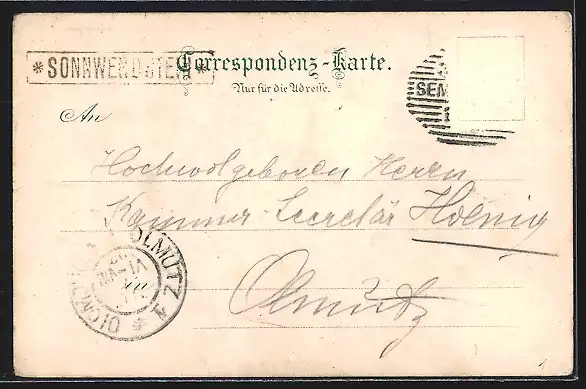 *SONNWENDSTEIN*
Correspondenz-Karte.
Nur für die Adresse.
SEM
An
Hochwolgeboren Herrn
Kammer-Secretär Hoenig
Olmütz
OLMÜTZ